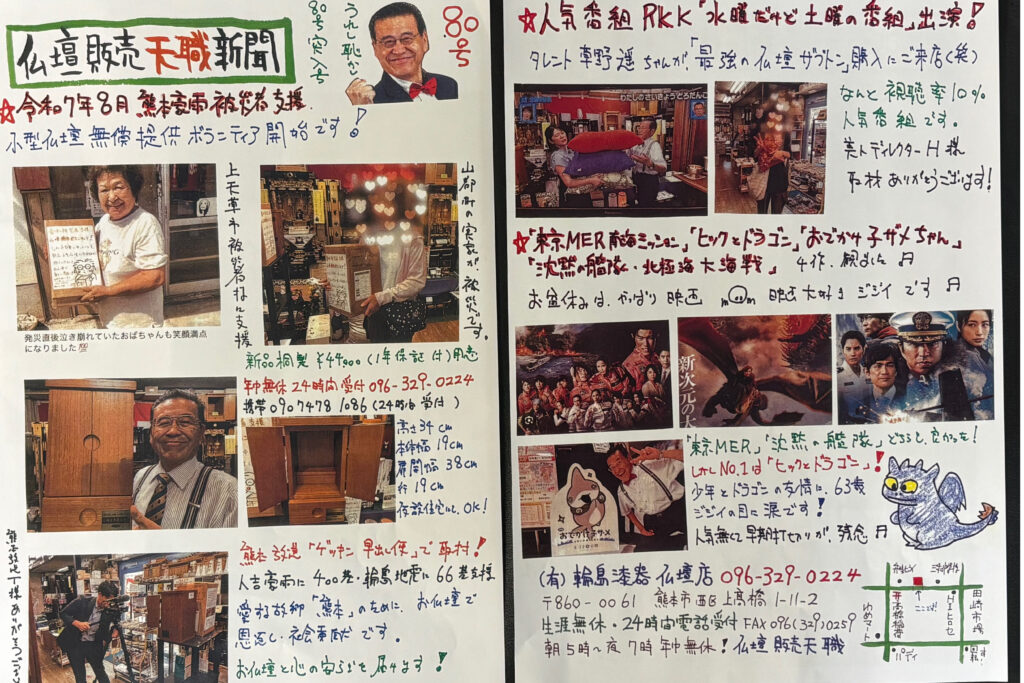 仏壇販売天職新聞
80号突入号
うれし恥かし
80号
☆令和7年8月 熊本豪雨被災者支援
小型仏壇無償提供ボランティア開始です!
上天草市被災者様に支援
山都町の実家が、被災です。
発災直後泣き崩れていたおばちゃんも笑顔満点
になりました💯
新品桐製 ¥44,000(1年保証付)用意
年中無休24時間受付096-329-0224
携帯09074781086(24時間受付)
高さ34cm
本体幅19cm
扉開巾38cm
仮設住宅にも、OK!
熊本放送「ゲツキン早出し便」で取材!
人吉豪雨に400基・輪島地震に66基支援
愛する故郷「熊本」のために、お仏壇で
恩返し・社会事献です。
お仏壇と心の安らぎを届けます!
☆人気番組RKK「水曜だけど土曜の番組」出演!
タレント草野遥ちゃんが、「最強の仏壇ザブトン」購入にご来店(笑)
わたしのさいきょうどろだんご
なんと視聴率10%
人気番組です。
美人ディレクターH様
取材ありがとうございます!
☆「東京MER南海ミッション」「ヒックとドラゴン」「おでかけ子ザメちゃん」
「沈黙の艦隊・北極海大海戦」4作、観ました
お盆休みは、やっぱり映画 映画大好きジジイです
新次元の
おでかけ子ザメ
「東京MER」「沈黙の艦隊」どちらも、良かったな!
しかしNo.1は「ヒックとドラゴン」!
少年とドラゴンの友情に、63歳
ジジイの目に涙です!
人気無くて早期打ちきりが、残念
(有)輪島漆器仏壇店 096-329-0224
〒860-0061 熊本市西区上高橋1-11-2
生涯無休・24時間電話受付FAX096(329)0259
朝5時~夜7時年中無休!仏壇販売天職
ここっ!
高橋稲荷
ゆめマート
田崎市場